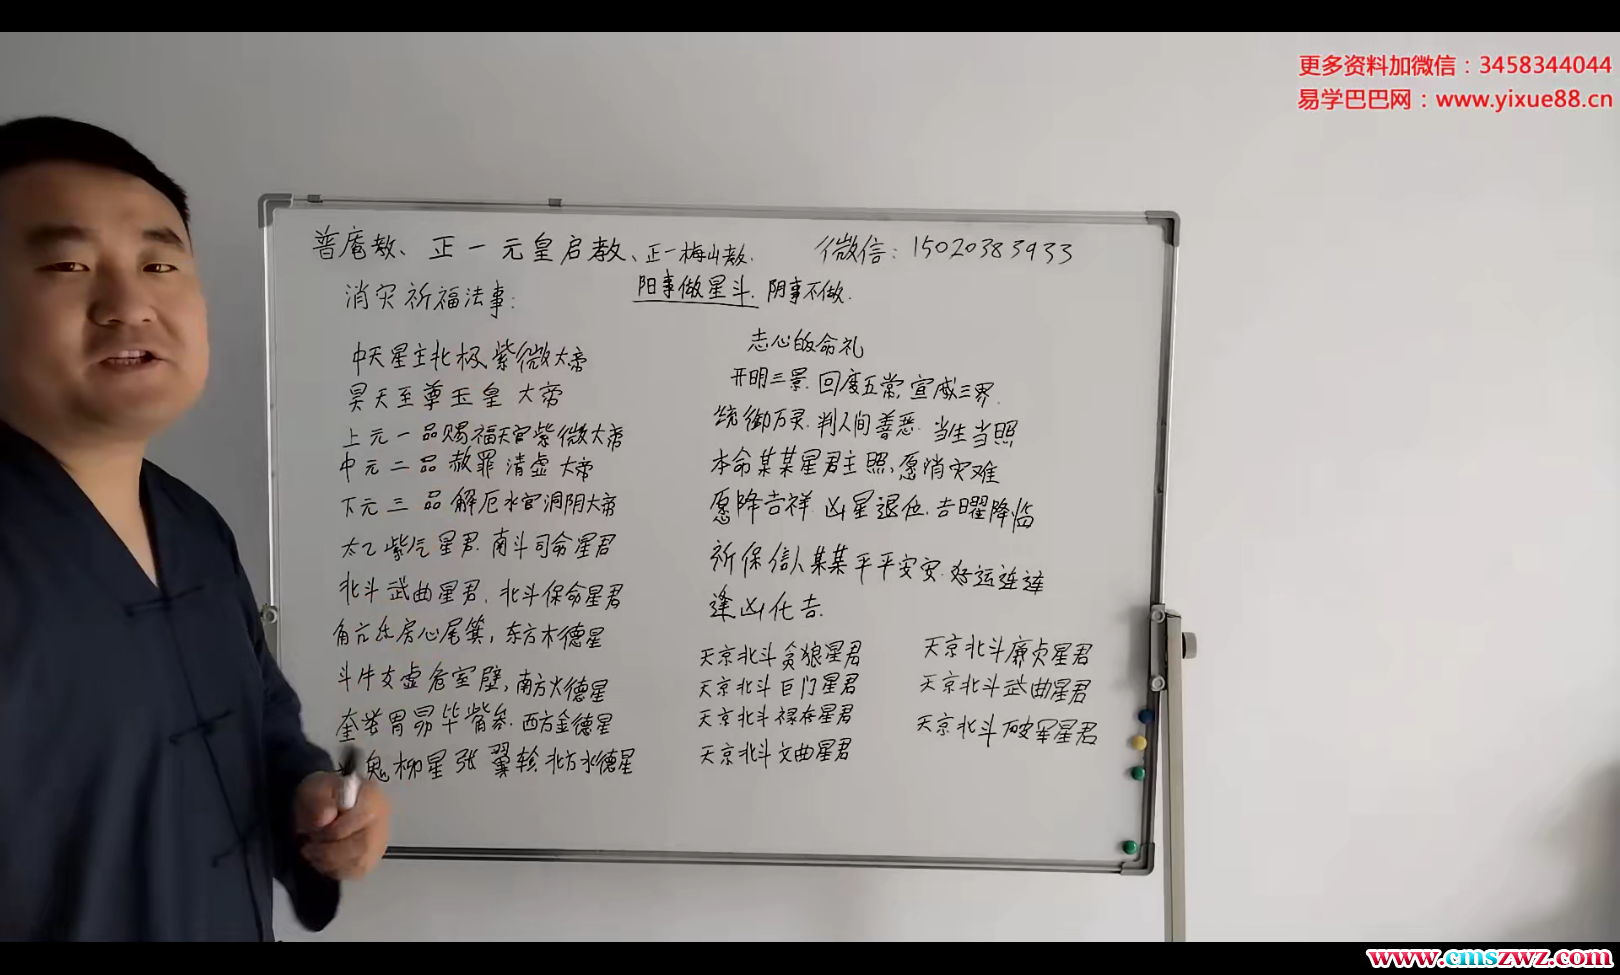 更多资料加微信：3458344044
易学巴巴网：www.yixue88.cn
普庵教、正一元皇启教、正一梅山教. 微信：15020383933
消灾祈福法事：
阳事做星斗. 阴事不做.
中天星主北极紫微大帝
昊天至尊玉皇大帝
上元一品赐福天官紫微大帝
中元二品赦罪清虚大帝
下元三品解厄水官洞阴大帝
太乙紫气星君. 南斗司命星君
北斗武曲星君. 北斗保命星君
角亢氐房心尾箕, 东方木德星
斗牛女虚危室壁, 南方火德星
奎娄胃昴毕觜参. 西方金德星
鬼柳星张翼轸 北方水德星
志心皈命礼
开明三景. 回度五常, 宣威三界.
统御万灵. 判人间善恶. 当生当照
本命某某星君主照, 愿消灾难
愿降吉祥. 凶星退位. 吉曜降临
祈保信人某某平平安安. 好运连连
逢凶化吉.
天京北斗贪狼星君 天京北斗廉贞星君
天京北斗巨门星君 天京北斗武曲星君
天京北斗禄存星君 天京北斗破军星君
天京北斗文曲星君
www.cmszwz.com